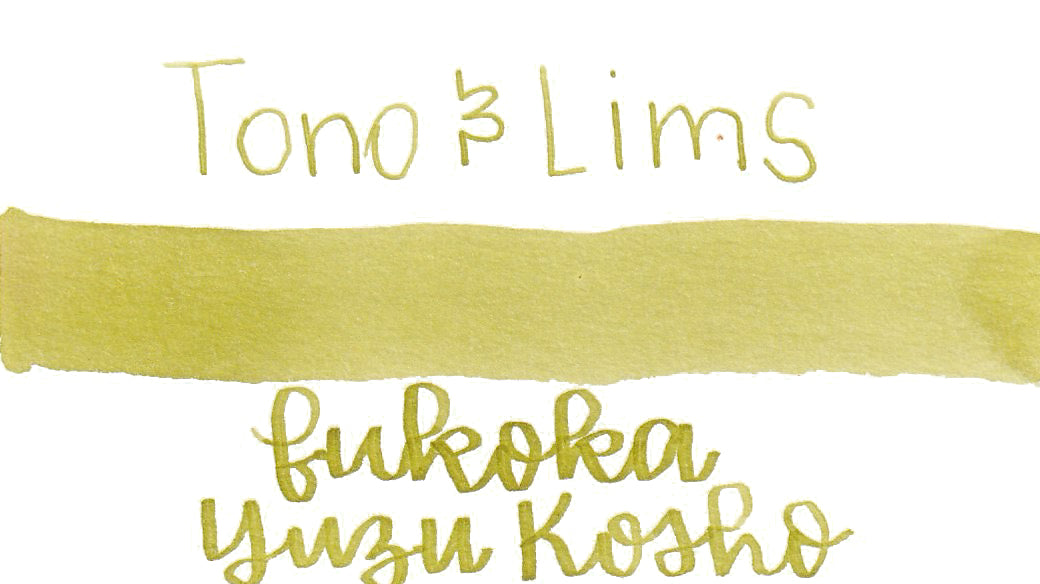 Tono & Lims
fukoka
Yuzu Kosho